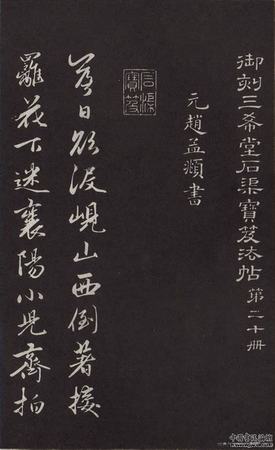 御刻三希堂石渠寶笈法帖 第二十册
元趙孟頫書
石渠寶笈
落日欲没峴山西倒著接
䍦花下迷襄陽小兒齊拍